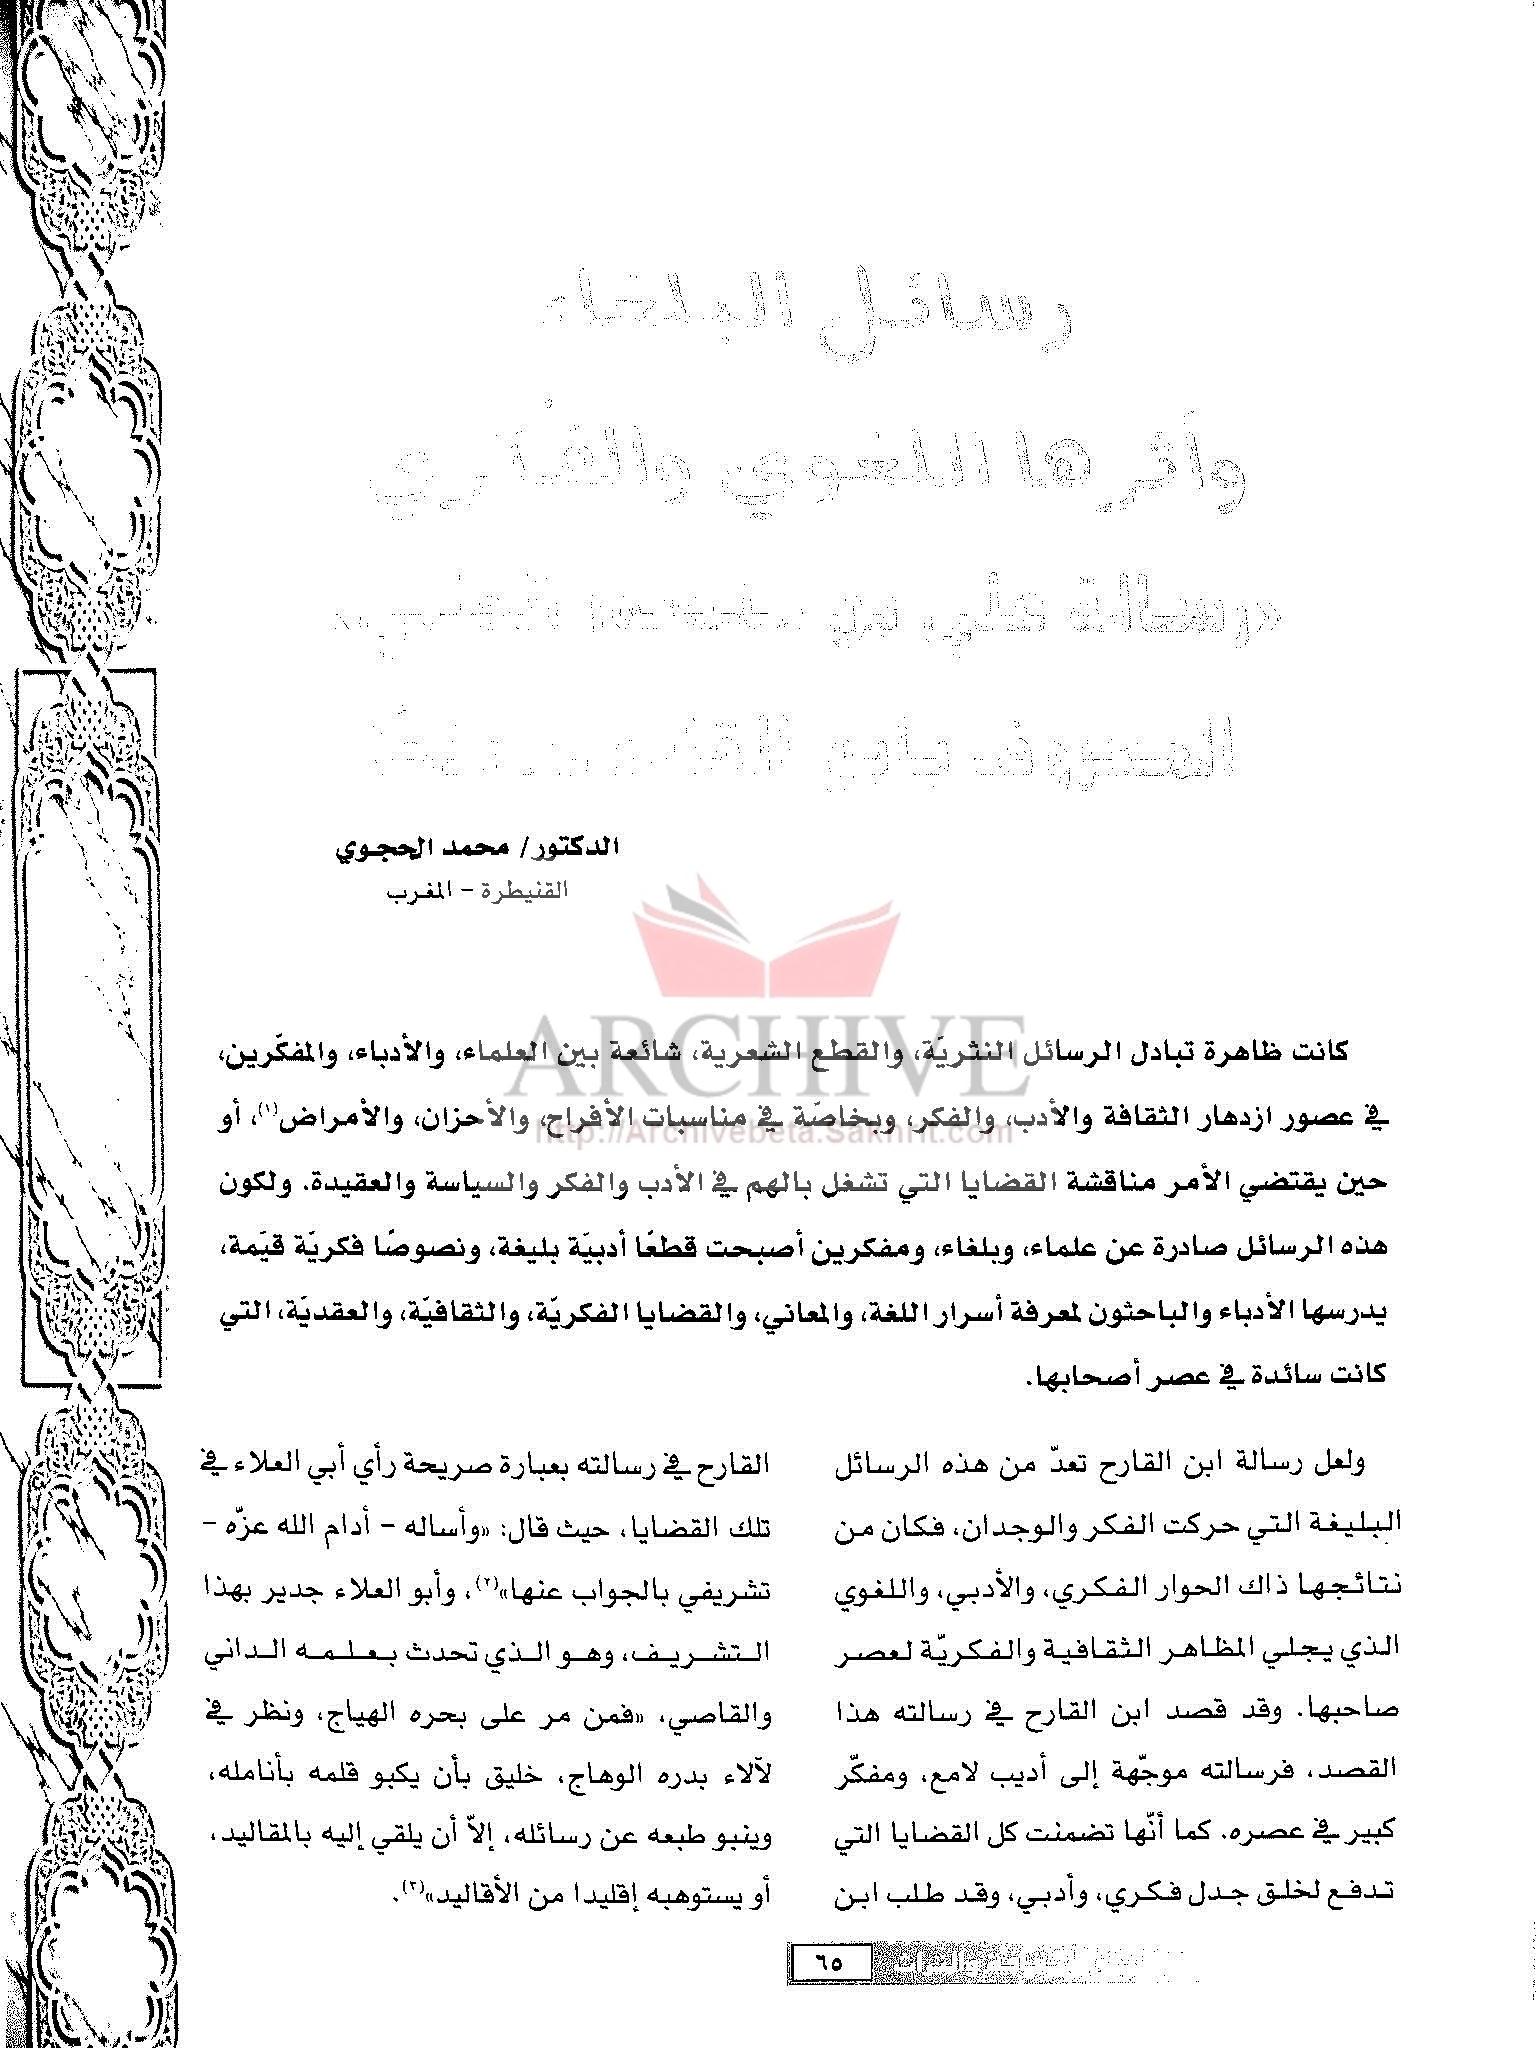 رسائل البلغاء
وأثرها اللغوي والفكري
«رسالة علي بن
المعروف بابن القارح
الدكتور/ محمد الحجوي
القنيطرة - المغرب
ARCHIVE
http://Archivebeta.Sakhrit.com
كانت ظاهرة تبادل الرسائل النثريّة، والقطع الشعرية، شائعة بين العلماء، والأدباء، والمفكّرين،
في عصور ازدهار الثقافة والأدب، والفكر، وبخاصّة في مناسبات الأفراح، والأحزان، والأمراض(١)، أو
حين يقتضي الأمر مناقشة القضايا التي تشغل بالهم في الأدب والفكر والسياسة والعقيدة. ولكون
هذه الرسائل صادرة عن علماء، وبلغاء، ومفكرين أصبحت قطعًا أدبيّة بليغة، ونصوصًا فكريّة قيّمة،
يدرسها الأدباء والباحثون لمعرفة أسرار اللغة، والمعاني، والقضايا الفكريّة، والثقافيّة، والعقديّة، التي
كانت سائدة في عصر أصحابها.
ولعل رسالة ابن القارح تعدّ من هذه الرسائل
البليغة التي حركت الفكر والوجدان، فكان من
نتائجها ذاك الحوار الفكري، والأدبي، واللغوي
الذي يجلي المظاهر الثقافية والفكريّة لعصر
صاحبها. وقد قصد ابن القارح في رسالته هذا
القصد، فرسالته موجّهة إلى أديب لامع، ومفكّر
كبير في عصره. كما أنّها تضمنت كل القضايا التي
تدفع لخلق جدل فكري، وأدبي، وقد طلب ابن
القارح في رسالته بعبارة صريحة رأي أبي العلاء في
تلك القضايا، حيث قال: «وأساله - أدام الله عزّه -
تشريفي بالجواب عنها»(٢)، وأبو العلاء جدير بهذا
التشريف، وهو الذي تحدث بعلمه الداني
والقاصي، «فمن مر على بحره الهياج، ونظر في
لآلاء بدره الوهاج، خليق بأن يكبو قلمه بأنامله،
وينبو طبعه عن رسائله، إلاّ أن يلقي إليه بالمقاليد،
أو يستوهبه إقليدا من الأقاليد»(٣).
٦٥